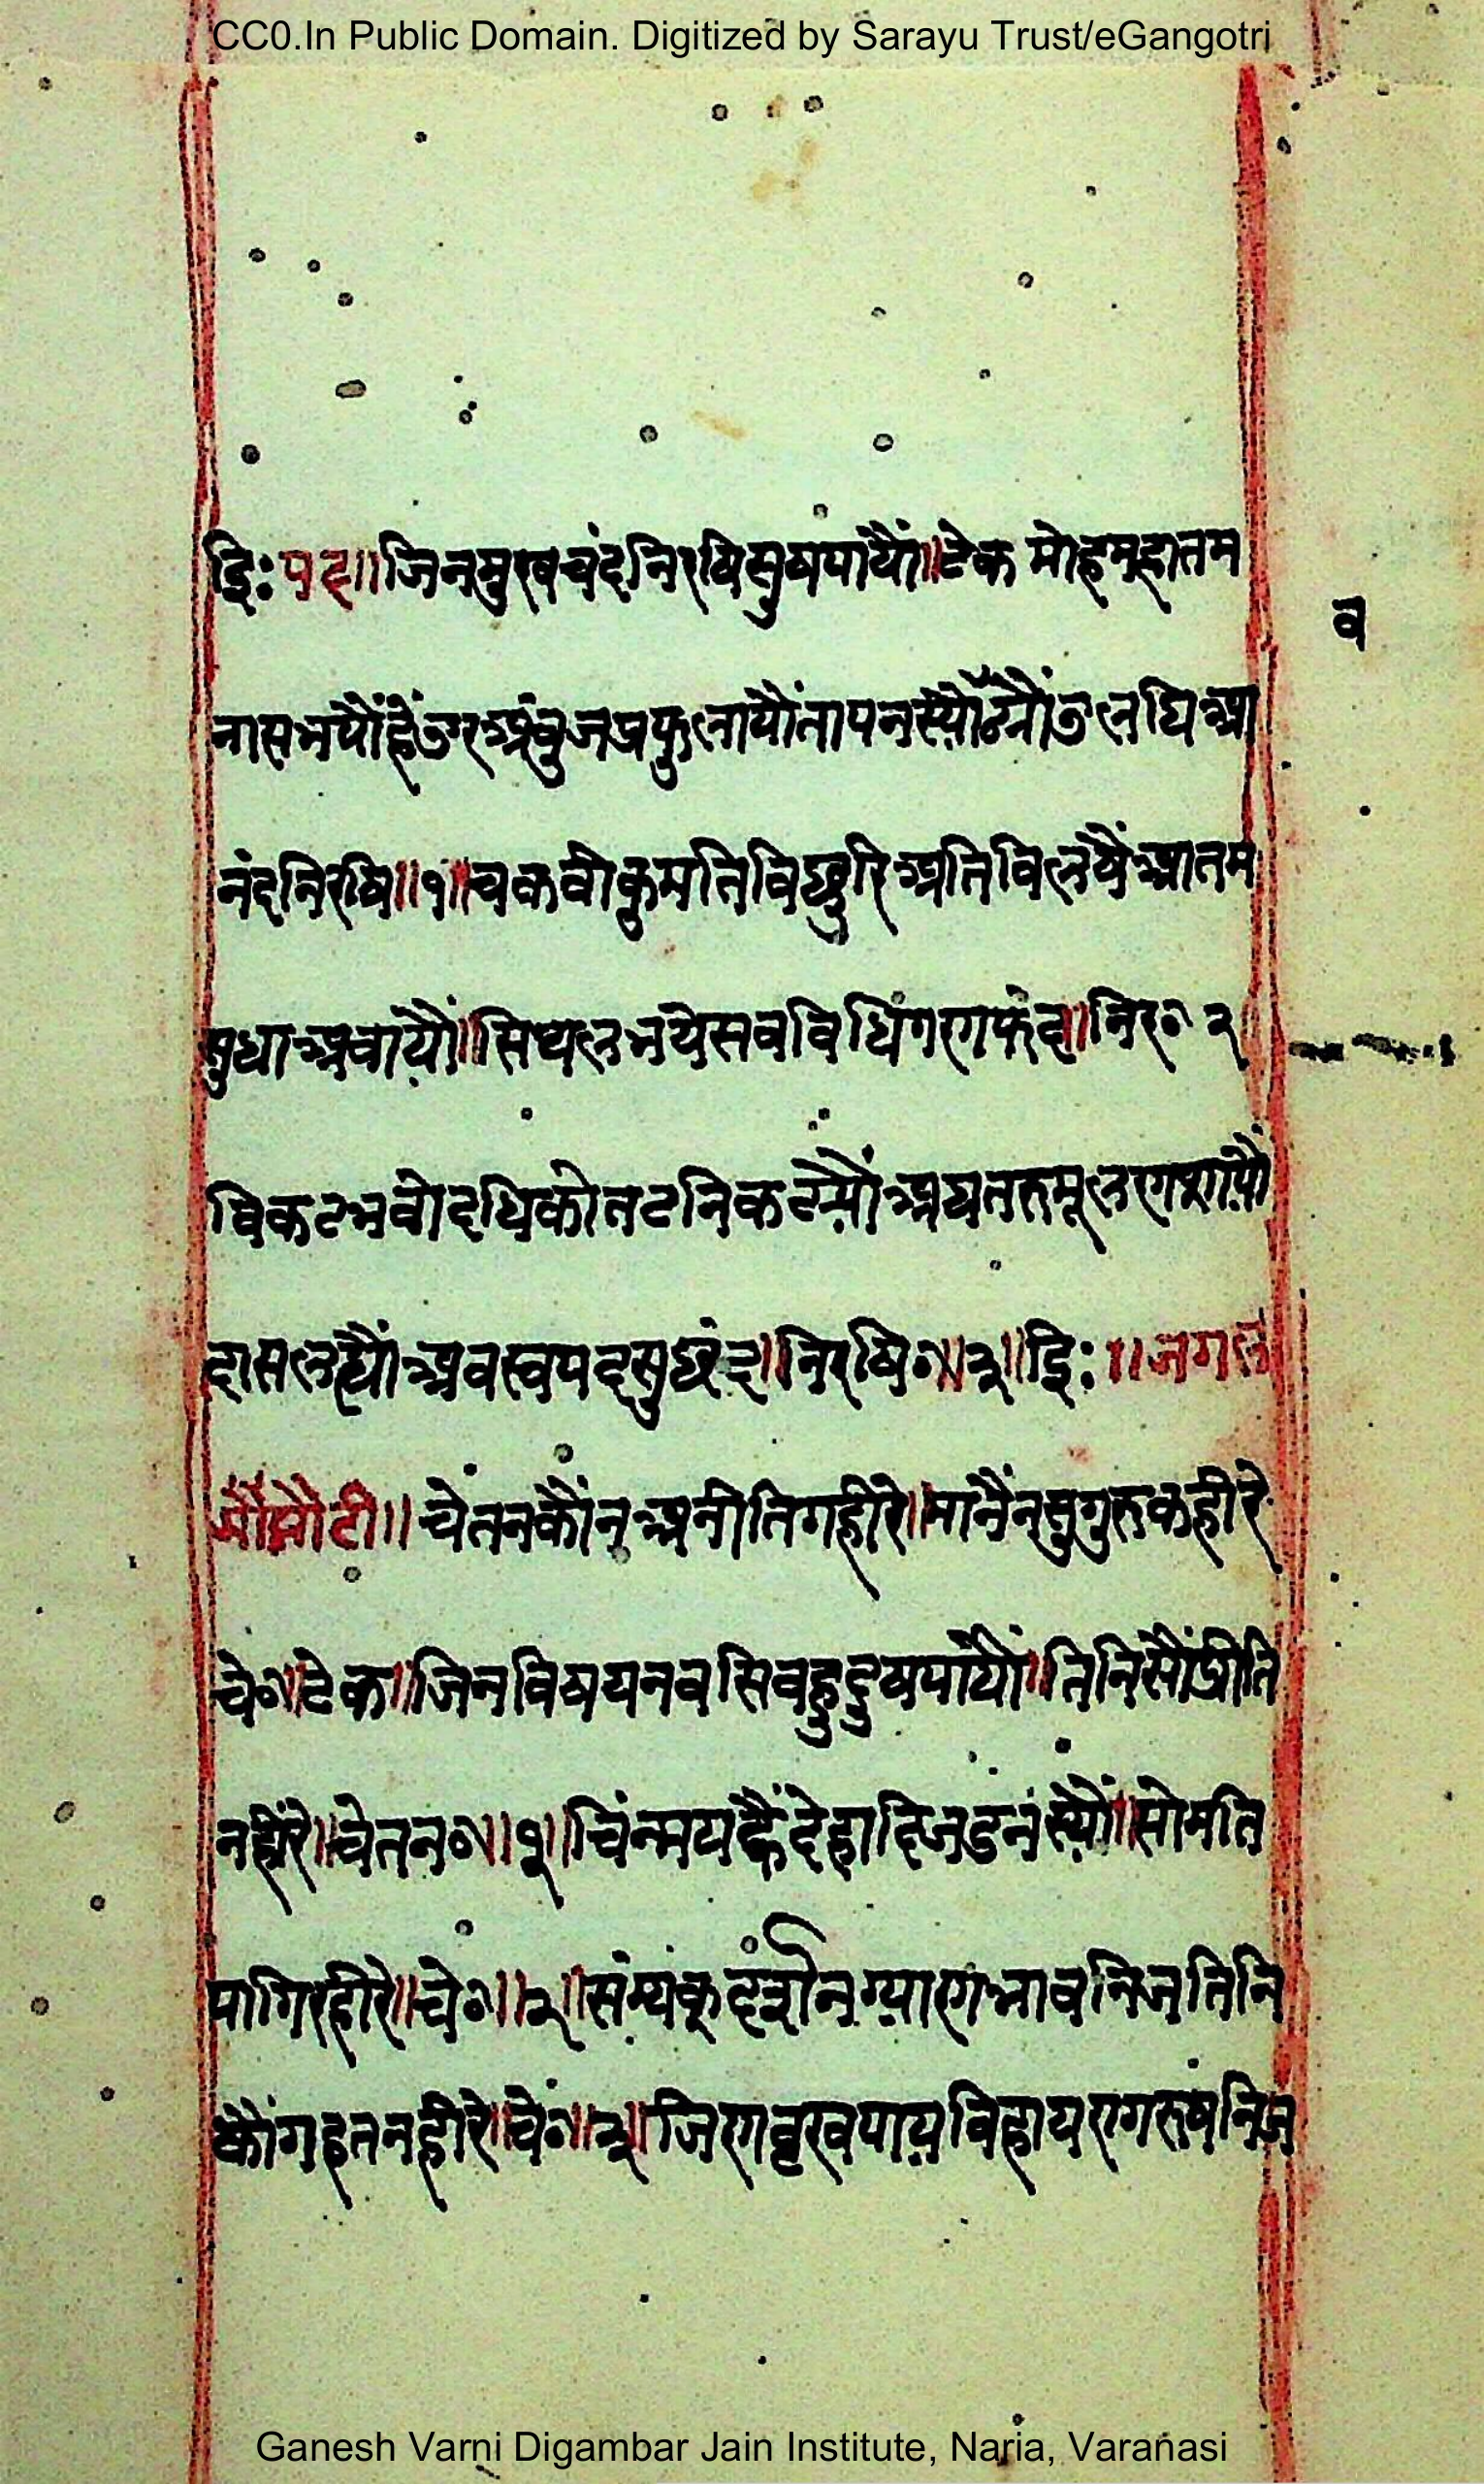 CC0.In Public Domain. Digitized by Sarayu Trust/eGangotri
द्धिः पद॥ जिनमुखचंदनिरषिसुषपायौं॥टेक मोहमहातम
व
नासभयौंहैंउरअंबुजप्रफुलायौंतापनस्यौ उलधिआ
नंदनिरषि॥१॥चकवीकुमतिविछुरिअतिविलषैंआतम
सुधाश्रवायौं॥सिथलभयेसबविधिगणफंद॥निर॰२
विकटभवोदधिकोतटनिकट्यौंअघतरुमूल
दासलह्यौंअवस्वपदसुछंद॥निरषि॰॥३॥द्धिः॥जगल
चेतनकौंनअनीतिगहीरे॥मानैंनसुगुरुकहीरे
चे॰॥टेक॥जिनविषयनवसिवहुदुषपायौं॥तिनिसौंप्रीति
नहीरे॥चेतन॰॥१॥चिंन्मयह्वैंदेहादिजडनंस्यौं॥सोमति
पागिरहीरे॥चे॰॥२॥संम्यंक्दर्शनग्याणभावनिजतिनि
कौंगहतनहीरे॥चे॰॥३॥जिणवृखपायविहायरागरुषनिज
Ganesh Varni Digambar Jain Institute, Naria, Varanasi